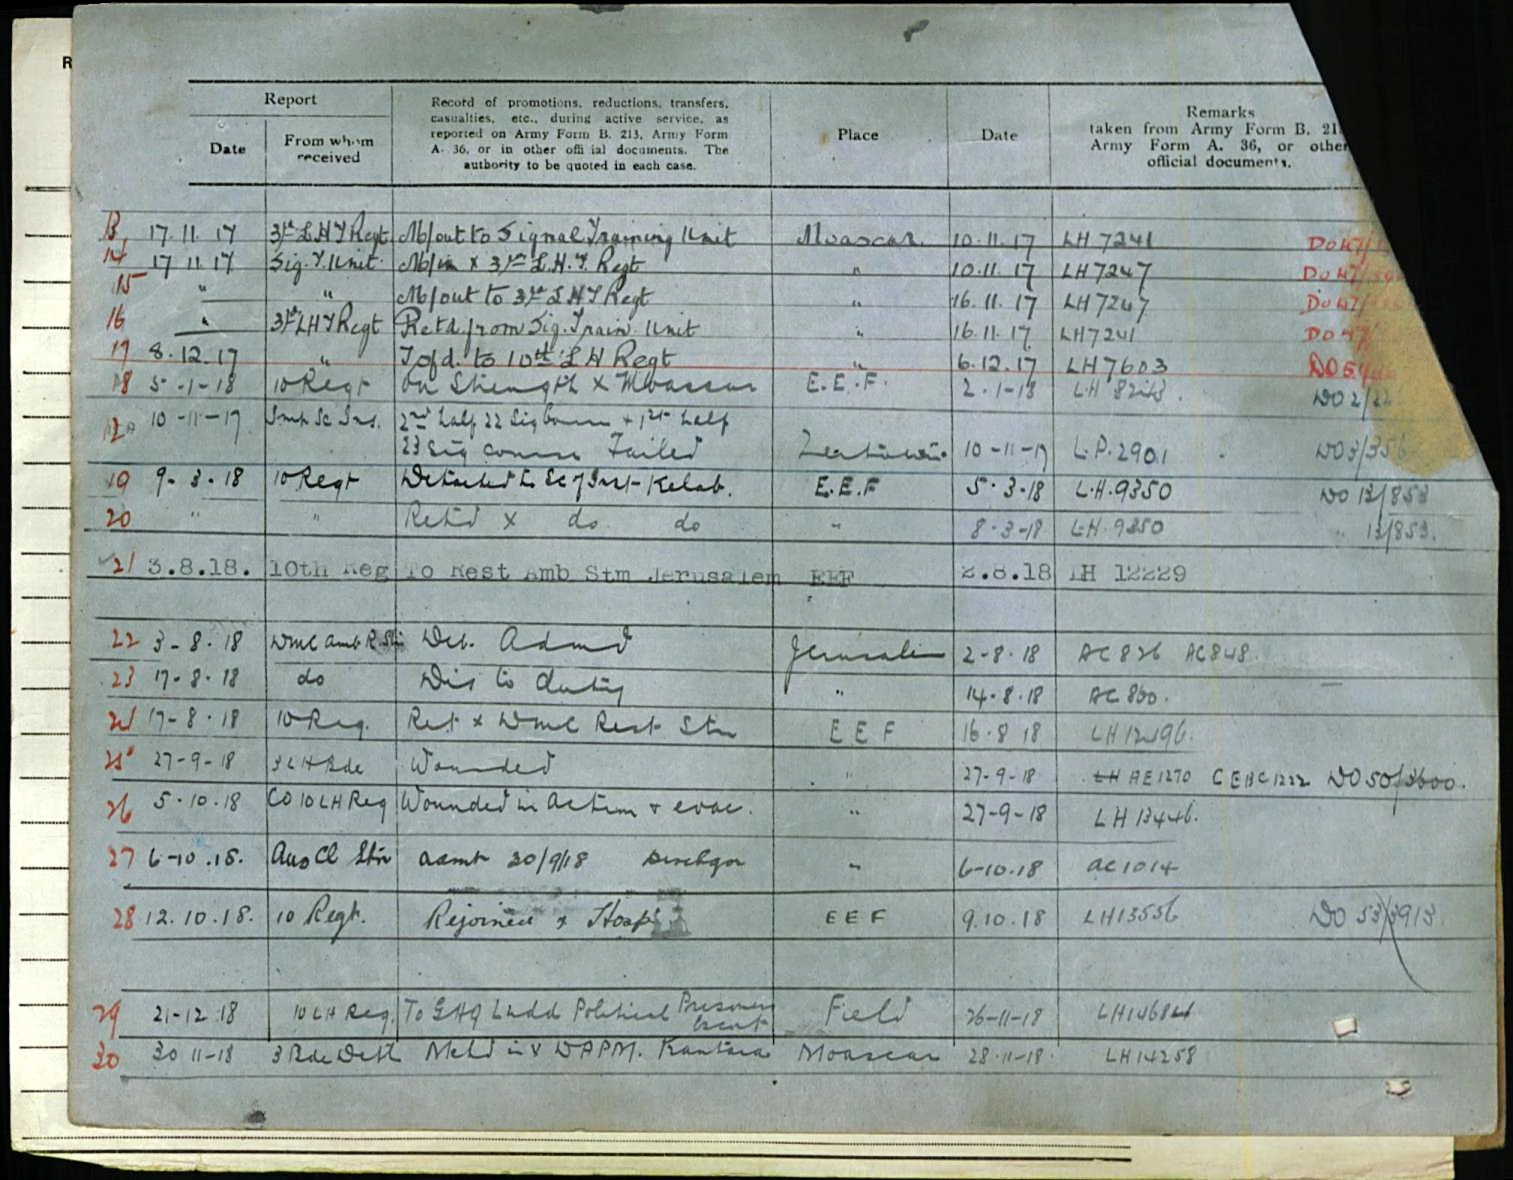 R
Report
Record of promotions, reductions, transfers,
casualties, etc., during active service, as
reported on Army Form B. 213, Army Form
A. 36, or in other official documents. The
authority to be quoted in each case.
Place
Date
Remarks
taken from Army Form B. 21
Army Form A. 36, or other
official documents.
Date
From whom
received
13 17.11.17 3rd L H T Regt M/out to Signal Training Unit Moascar. 10.11.17 LH 7241 DO47/
14 17 11 17 Sig. T. Unit. M/in x 3rd L.H.T. Regt " 10.11.17 LH7247 DO47/
15 " " M/out to 3rd L H T Regt " 16.11.17 LH7247 DO47/
16 " 3rd LHT Regt Retd. from Sig. Train. Unit " 16.11.17 LH7241 DO47/
17 8.12.17 " Tsfd. to 10th L H Regt " 6.12.17 LH7603 DO
18 5-1-18 10 Regt On Strength x Moascar E.E.F. 2.1-18 LH DO2/22
12A 10-11-17 2nd half 22 Sig Course + 1st half
23 Sig course Failed Zeitoun 10-11-17 L.P.2901 DO3/356
19 9-3-18 10 Regt Detached to Sc of Inst. E.E.F 5.3-18 L.H.9350 DO 13/853
20 " " Retd x do do " 8-3-18 LH.9350 " 13/853.
21 3.8.18. 10th Reg To Rest Amb Stn Jerusalem EEF 2.8.18 LH 12229
22 3-8-18 Deb. Admd Jerusalem 2-8-18 AC 826 AC848.
23 17-8-18 do Dis to duty " 14-8-18 AC 860.
24 17-8-18 10 Reg. Ret x Rest Stn E E F 16-8 18
25 27-9-18 3 LH Bde Wounded " 27-9-18 LH AE1270 DO 50/3600.
26 5-10.18 CO 10 LH Reg Wounded in action & evac. " 27-9-18 LH 13446.
27 6-10.18. Aus Cl Stn admt 30/9/18 " 6-10.18 AC1014
28 12.10.18. 10 Regt. Rejoined x Hosp E E F 9.10.18 LH13556 DO 53/3913
29 21-12 18 10 LH Reg. To GHQ Ludd Political Prisoners
Escort Field 26-11-18
30 30 11-18 3 Bde Detl in x DAPM. Kantara Moascar 28-11-18. LH14258